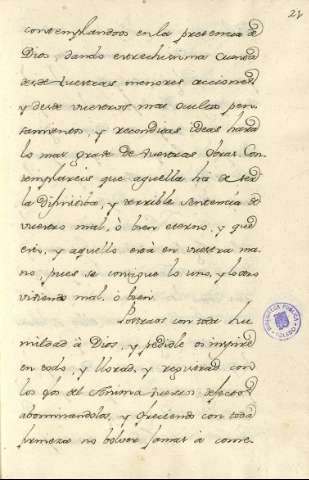 21
contemplandoos en la presencia de
Dios, dando estrechissima cuenta
desde vuestras menores acciones,
y desde vuestros mas ocultos pen-
samientos, y recondicas ideas hasta
lo mas grave de vuestras obras. Con-
templareis que aquella ha de ser
la difinitiba, y terrible sentencia de
vuestro mal, ò bien eterno, y que
esto, y aquello está en vuestra ma-
no, pues se consigue lo uno, y lo otro
viviendo mal, ò bien.
Postraos con toda hu-
mildad à Dios, y pedidle os inspire
en todo, y llorad, y registrad con
los ojos del Anima vuestros defectos
abominandolos, y ofreciendo con toda
firmeza no bolver jamas à come-
BIBLIOTECA PUBLICA
TOLEDO